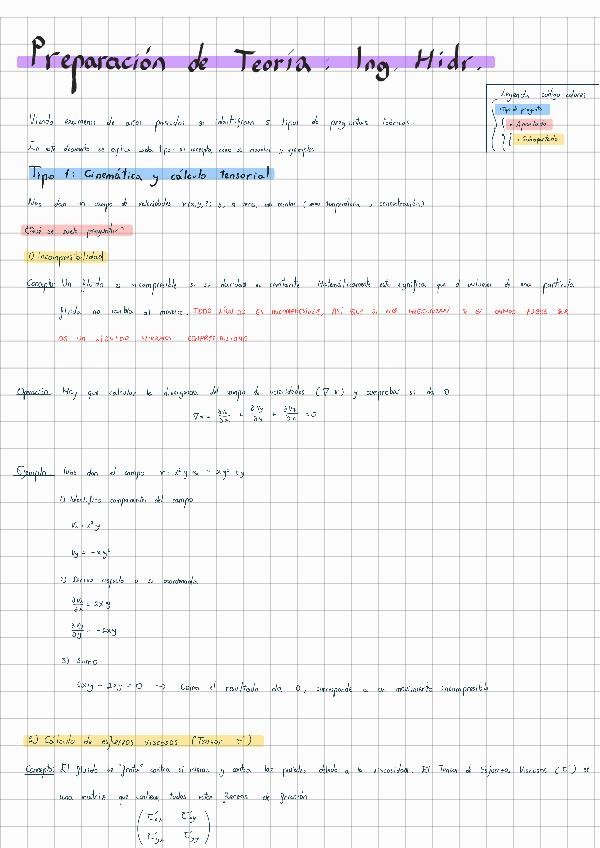 Preparación de Teoría: Ing. Hidr.
Leyenda código colores
Tipo de pregunta
Apartado
Subapartado
Viendo exámenes de años pasados se identifican 5 tipos de preguntas teóricas.
En este documento se explica cada tipo: su concepto, cómo se resuelve y ejemplos
Tipo 1: Cinemática y cálculo tensorial
Nos dan un campo de velocidades v(x,y,z) y, a veces, un escalar (como temperatura o concentración)
¿Qué se suele preguntar?
1) Incompresibilidad
Concepto: Un fluido es incompresible si su densidad es constante. Matemáticamente esto significa que el volumen de una partícula
fluida no cambia al moverse. TODO LÍQUIDO ES INCOMPRESIBLE, ASÍ QUE SI NOS PREGUNTAN SI EL CAMPO PUEDE SER
DE UN LÍQUIDO MIRAMOS
Operación: Hay que calcular la divergencia del campo de velocidades (∇·v) y comprobar si da 0
∇·v = ∂Vx/∂x + ∂Vy/∂y + ∂Vz/∂z = 0
Ejemplo: Nos dan el campo v = x²y ex - xy² ey
1) Identifico componentes del campo
Vx = x²y
Vy = -xy²
2) Derivo respecto a su coordenada
∂Vx/∂x = 2xy
∂Vy/∂y = -2xy
3) Sumo
2xy - 2xy = 0 → Como el resultado da 0, corresponde a un movimiento incompresible
2) Cálculo de esfuerzos viscosos (Tensor τ')
Concepto: El fluido se "frota" contra sí mismo y contra las paredes debido a la viscosidad. El Tensor de Esfuerzos Viscosos (τ') es
una matriz que contiene todas estas fuerzas de fricción
τ'xx τ'xy
τ'yx τ'yy